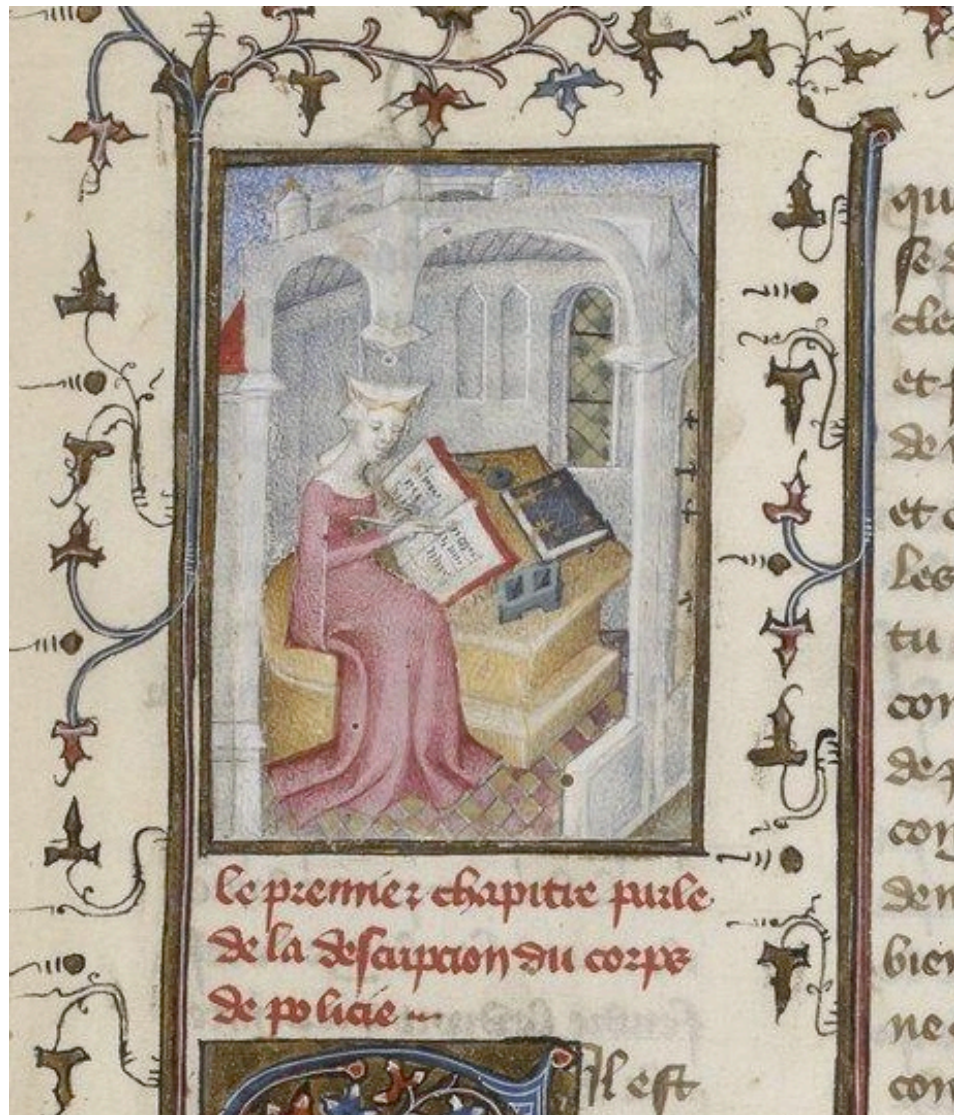 le premier chapitre parle
de la descripcion du corps
de policie
Il est
qu
se
et
de
et
les
tu
con
de
de
bien
ne